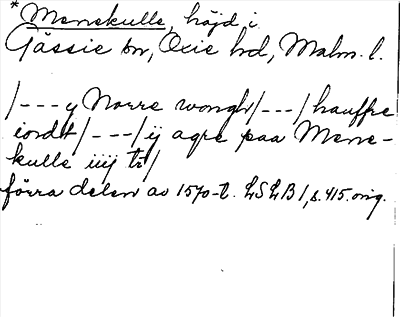 * Menskulle, höjd i
Gässie sn, Oxie hd, Malm. l.
/---y Norre wongh/---/hauffre
iordt/---/ij agre paa Mene-
kulle iiij tr/
förra delen av 1570-t. LSLB 1, s. 415. orig.